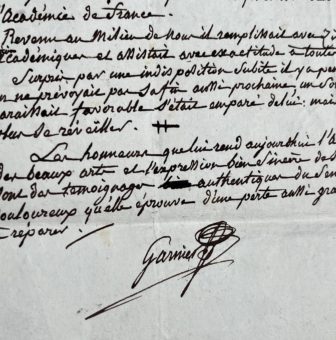 l'académie de France.
Revenu au Milieu de nous il remplissait avec
académiques et assistait avec exactitude à toute
Surpris par une indisposition Subite il y a pe
on ne prévoyait pas Sa fin aussi prochaine, un So
paraissait favorable S'était emparé de lui: mai
plus se réveiller.
Les honneurs que lui rend aujourd'hui l'A
des beaux arts et l'expression bien Sincère de S
sont des témoignages authentiques du Sen
douloureux qu'elle éprouve d'une perte aussi gra
réparer.
Garnier